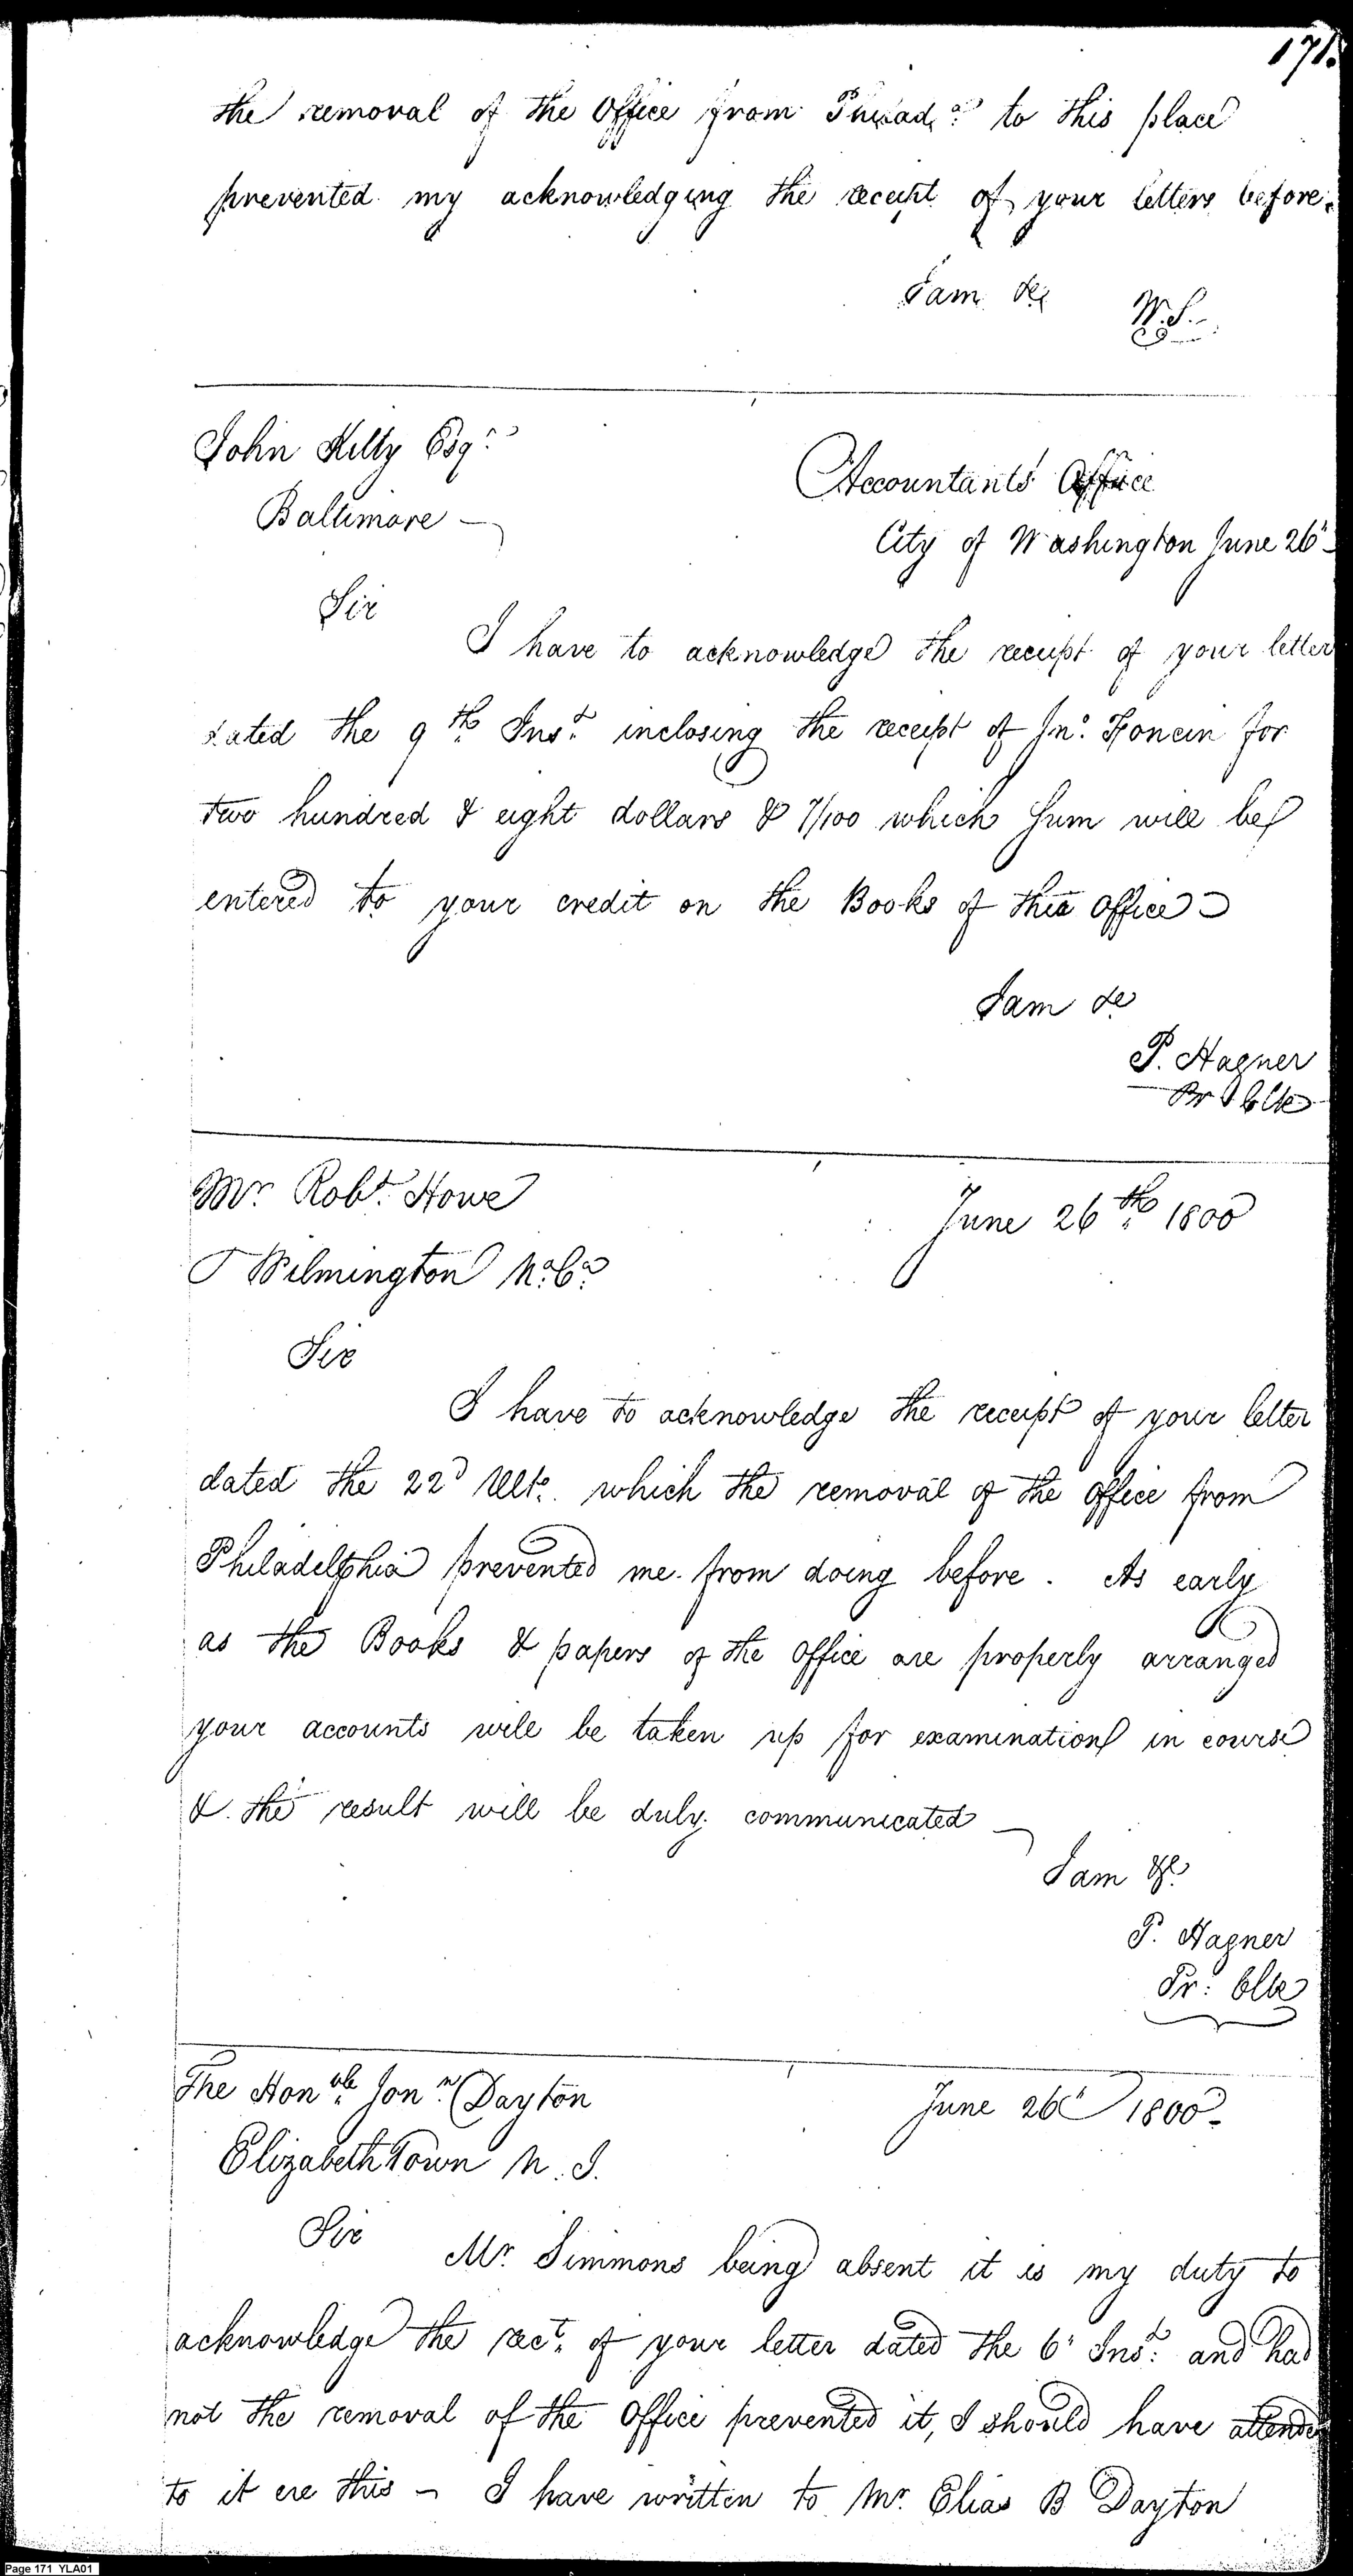 171.
the removal of the Office from Philad.ª to this place
prevented my acknowledging the receipt of your letters before.
I am &c
W. S.
John Kilty Esqr.
Baltimore —
Accountants Office
City of Washington June 26th
Sir
I have to acknowledge the receipt of your letter
dated the 9th Inst. inclosing the receipt of Jno. for
two hundred & eight dollars & 7/100 which Sum will be
entered to your credit on the Books of this Office
I am &c
P. Hagner
Pr Clk
Mr. Robt. Howe
Wilmington No. Ca.
June 26th 1800
Sir
I have to acknowledge the receipt of your letter
dated the 22d Ulto. which the removal of the office from
Philadelphia prevented me from doing before. As early
as the Books & papers of the Office are properly arranged
your accounts will be taken up for examination in course
& the result will be duly communicated —
I am &c.
P. Hagner
Pr: Clk
The Honble. Jonn. Dayton
Elizabeth Town N. J.
June 26th 1800
Sir
Mr. Simmons being absent it is my duty to
acknowledge the rect. of your letter dated the 6th Inst. and had
not the removal of the Office prevented it, I should have attended
to it ere this — I have written to Mr. Elias B Dayton
Page 171 YLA01